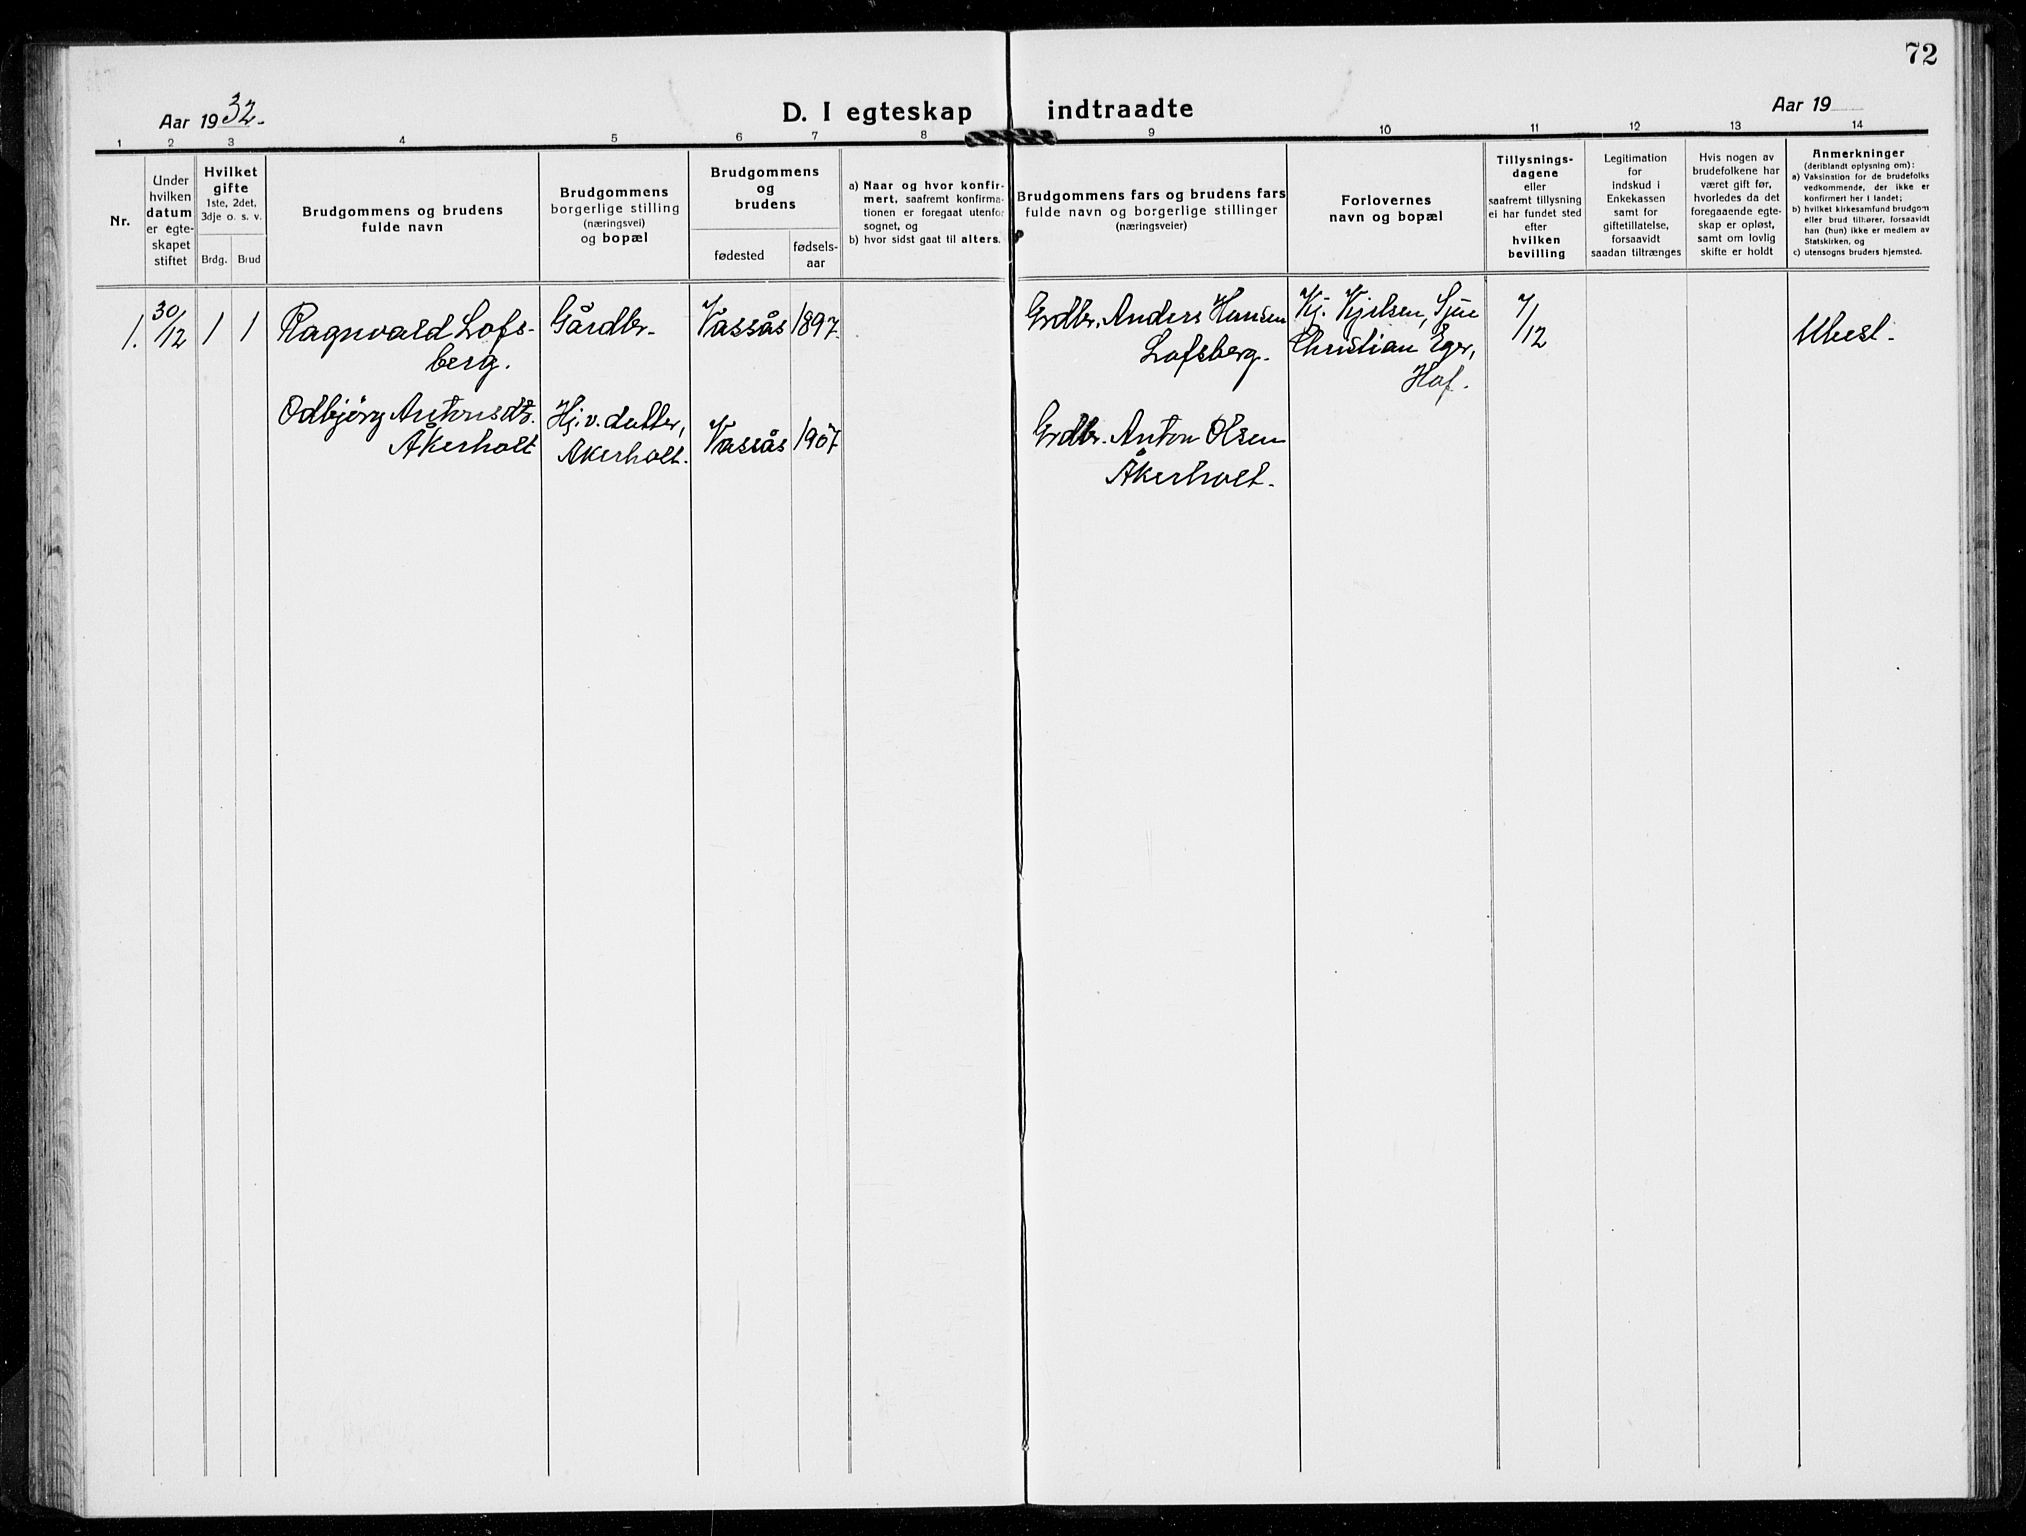 72
Aar 1932.
D. I egteskap indtraadte
Aar 19
1 2 3 4 5 6 7 8 9 10 11 12 13 14
Nr.
Under
hvilken
datum
er egte-
skapet
stiftet
Hvilket
gifte
1ste, 2det,
3dje o. s. v.
Brdg. Brud
Brudgommens og brudens
fulde navn
Brudgommens
borgerlige stilling
(næringsvei)
og bopæl
Brudgommens
og
brudens
fødested
fødsels-
aar
a) Naar og hvor konfir-
mert, saafremt konfirma-
tionen er foregaat utenfor
sognet, og
b) hvor sidst gaat til alters.
Brudgommens fars og brudens fars
fulde navn og borgerlige stillinger
(næringsveier)
Forlovernes
navn og bopæl
Tillysnings-
dagene
eller
saafremt tillysning
ei har fundet sted
efter
hvilken
bevilling
Legitimation
for
indskud i
Enkekassen
samt for
giftetillatelse,
forsaavidt
saadan tiltrænges
Hvis nogen av
brudefolkene har
været gift før,
hvorledes da det
foregaaende egte-
skap er opløst,
samt om lovlig
skifte er holdt
Anmerkninger
(deriblandt oplysning om):
a) Vaksination for de brudefolks
vedkommende, der ikke er
konfirmert her i landet;
b) hvilket kirkesamfund brudgom
eller brud tilhører, forsaavidt
han (hun) ikke er medlem av
Statskirken, og
c) utensogns bruders hjemsted.
1. 30/12 1 1
Ragnvald Lofs-
berg.
Gårdbr.
Vassås 1897.
Grdbr. Anders Hansen
Lofsberg.
Kj. Kjelsen, Sjue
Christian Eger,
Hof.
7/12
Ubesl.
Odbjørg Antonsdtr.
Åkerholt
Hj.v. datter,
Akerholt.
Vassås 1907
Grdbr. Anton Olsen
Åkerholt.